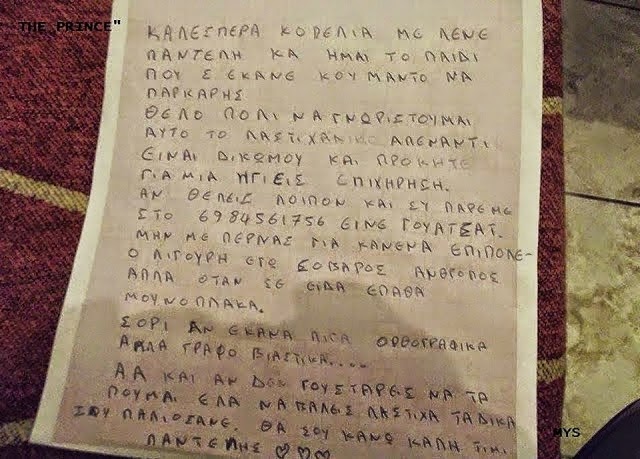 THE PRINCE"
ΚΑΛΕΣΠΕΡΑ ΚΟΠΕΛΙΑ ΜΕ ΛΕΝΕ
ΠΑΝΤΕΛΗ ΚΑ ΗΜΑΙ ΤΟ ΠΑΙΔΙ
ΠΟΥ Σ ΕΚΑΝΕ ΚΟΥΜΑΝΤΟ ΝΑ
ΠΑΡΚΑΡΗΣ
ΘΕΛΟ ΠΟΛΙ ΝΑ ΓΝΩΡΙΣΤΟΥΜΑΙ
ΑΥΤΟ ΤΟ ΛΑΣΤΙΧΑΔΙΚΟ ΑΠΕΝΑΝΤΙ
ΕΙΝΑΙ ΔΙΚΩΜΟΥ ΚΑΙ ΠΡΟΚΗΤΕ
ΓΙΑ ΜΙΑ ΗΓΙΕΙΣ ΕΠΙΧΗΡΗΣΗ.
ΑΝ ΘΕΛΕΙΣ ΛΟΙΠΟΝ ΚΑΙ ΣΥ ΠΑΡΕ ΜΕ
ΣΤΟ 6984561756 ΕΙΝΕ ΓΟΥΑΤΣΑΤ.
ΜΗΝ ΜΕ ΠΕΡΝΑΣ ΓΙΑ ΚΑΝΕΝΑ ΕΠΙΠΟΛΕ-
Ο ΛΙΓΟΥΡΗ ΕΓΩ ΣΟΒΑΡΟΣ ΑΝΘΡΟΠΟΣ
ΑΛΛΑ ΟΤΑΝ ΣΕ ΕΙΔΑ ΕΠΑΘΑ
ΜΟΥΝΟΠΛΑΚΑ.
ΣΟΡΙ ΑΝ ΕΚΑΝΑ ΛΙΓΑ ΟΡΘΟΓΡΑΦΙΚΑ
ΑΛΛΑ ΓΡΑΦΟ ΒΙΑΣΤΙΚΑ....
ΑΑ ΚΑΙ ΑΝ ΔΕΝ ΓΟΥΣΤΑΡΕΙΣ ΝΑ ΤΑ
ΠΟΥΜΑΙ ΕΛΑ ΝΑ ΒΑΛΕΙΣ ΛΑΣΤΙΧΑ ΤΑ ΔΙΚΑ
ΣΟΥ ΠΑΛΙΟΣΑΝΕ. ΘΑ ΣΟΥ ΚΑΝΩ ΚΑΛΗ ΤΙΜΗ.
ΠΑΝΤΕΛΗΣ ♡♡♡